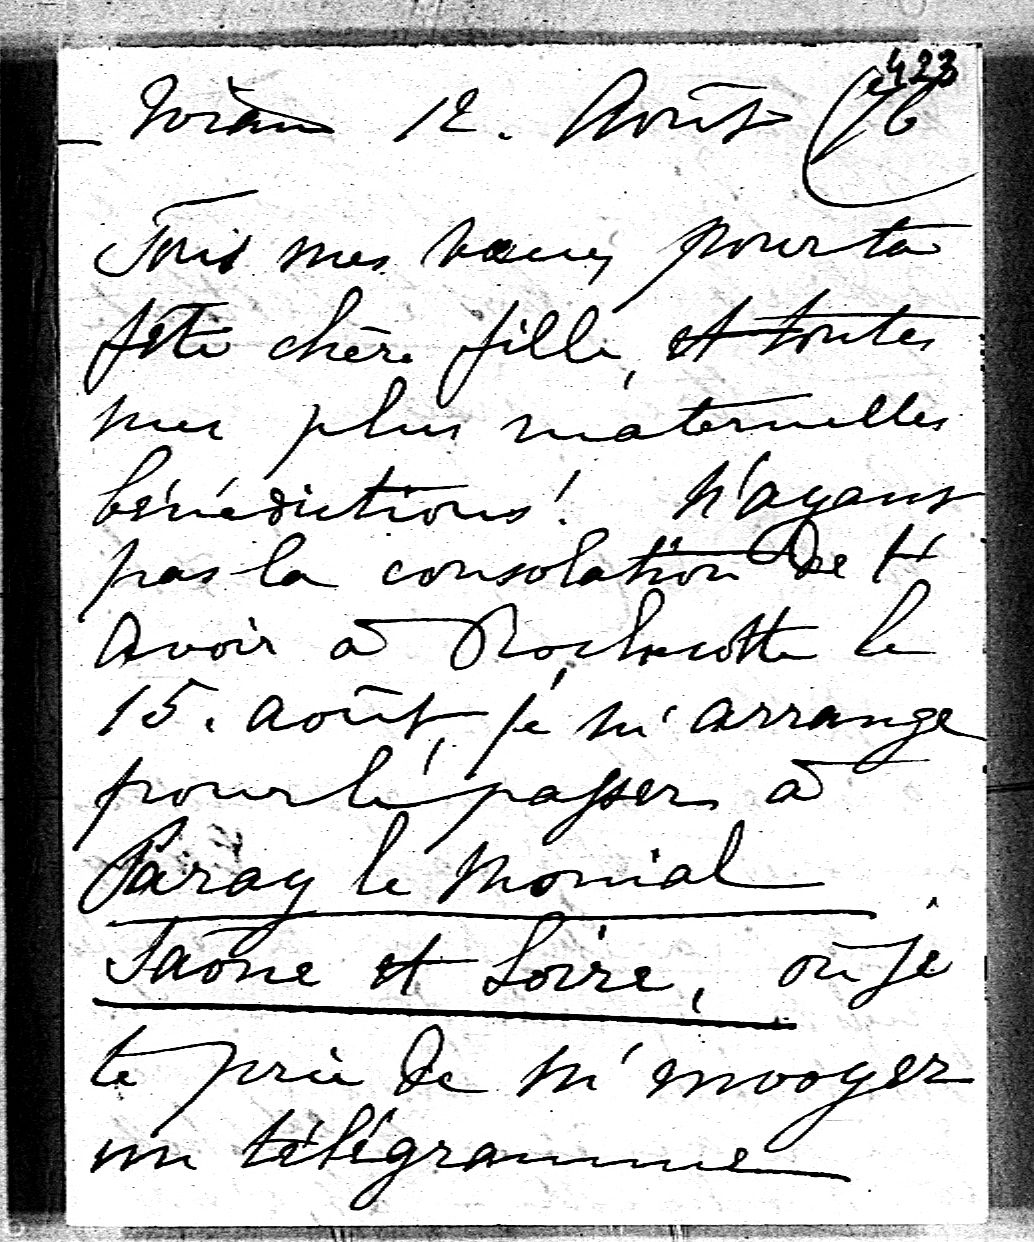 423
12. Août 76
Tous mes vœux pour ta
fête chère fille, et toutes
mes plus maternelles
bénédictions! N'ayant
pas la consolation de t'
avoir à Rochecotte le
15. août, je m'arrange
pour le passer à
Paray le Monial
Saône et Loire, où je
te prie de m'envoyer
un télégramme